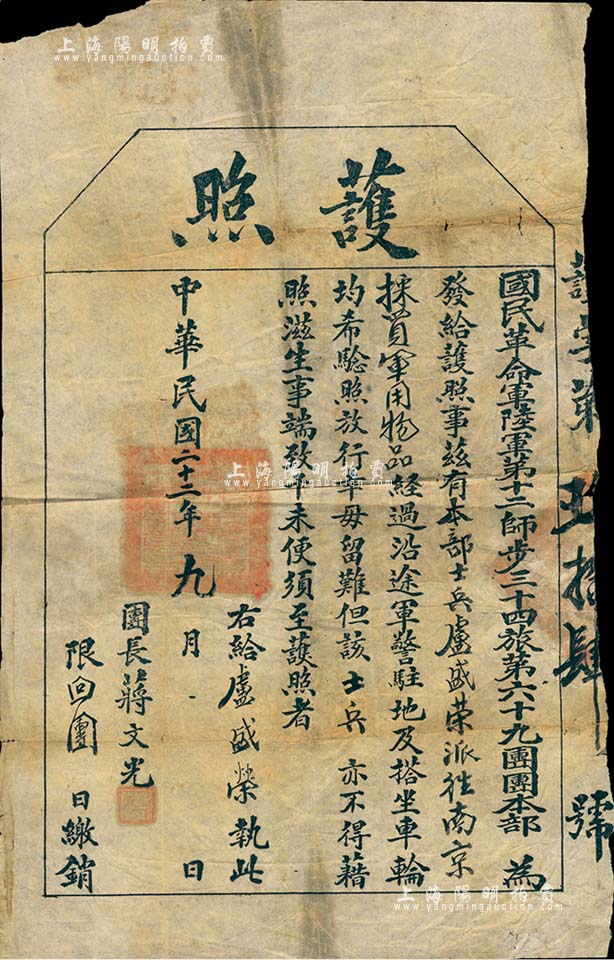 上海陽明拍賣
www.yangmingauction.com
護照
護字第 五拾肆 號
國民革命軍陸軍第十二師步三十四旅第六十九團團本部 為
發給護照事茲有本部士兵盧盛荣派往南京
採買軍用物品經過沿途軍警駐地及搭坐車輪
均希驗照放行幸毋留難但該士兵亦不得藉
照滋生事端致干未便須至護照者
右給盧盛榮執此
中華民國二十二年九月 日
團長蔣文光
限回團 日繳銷
上海陽明拍賣
www.yangmingauction.com
上海陽明拍賣
www.yangmingauction.com